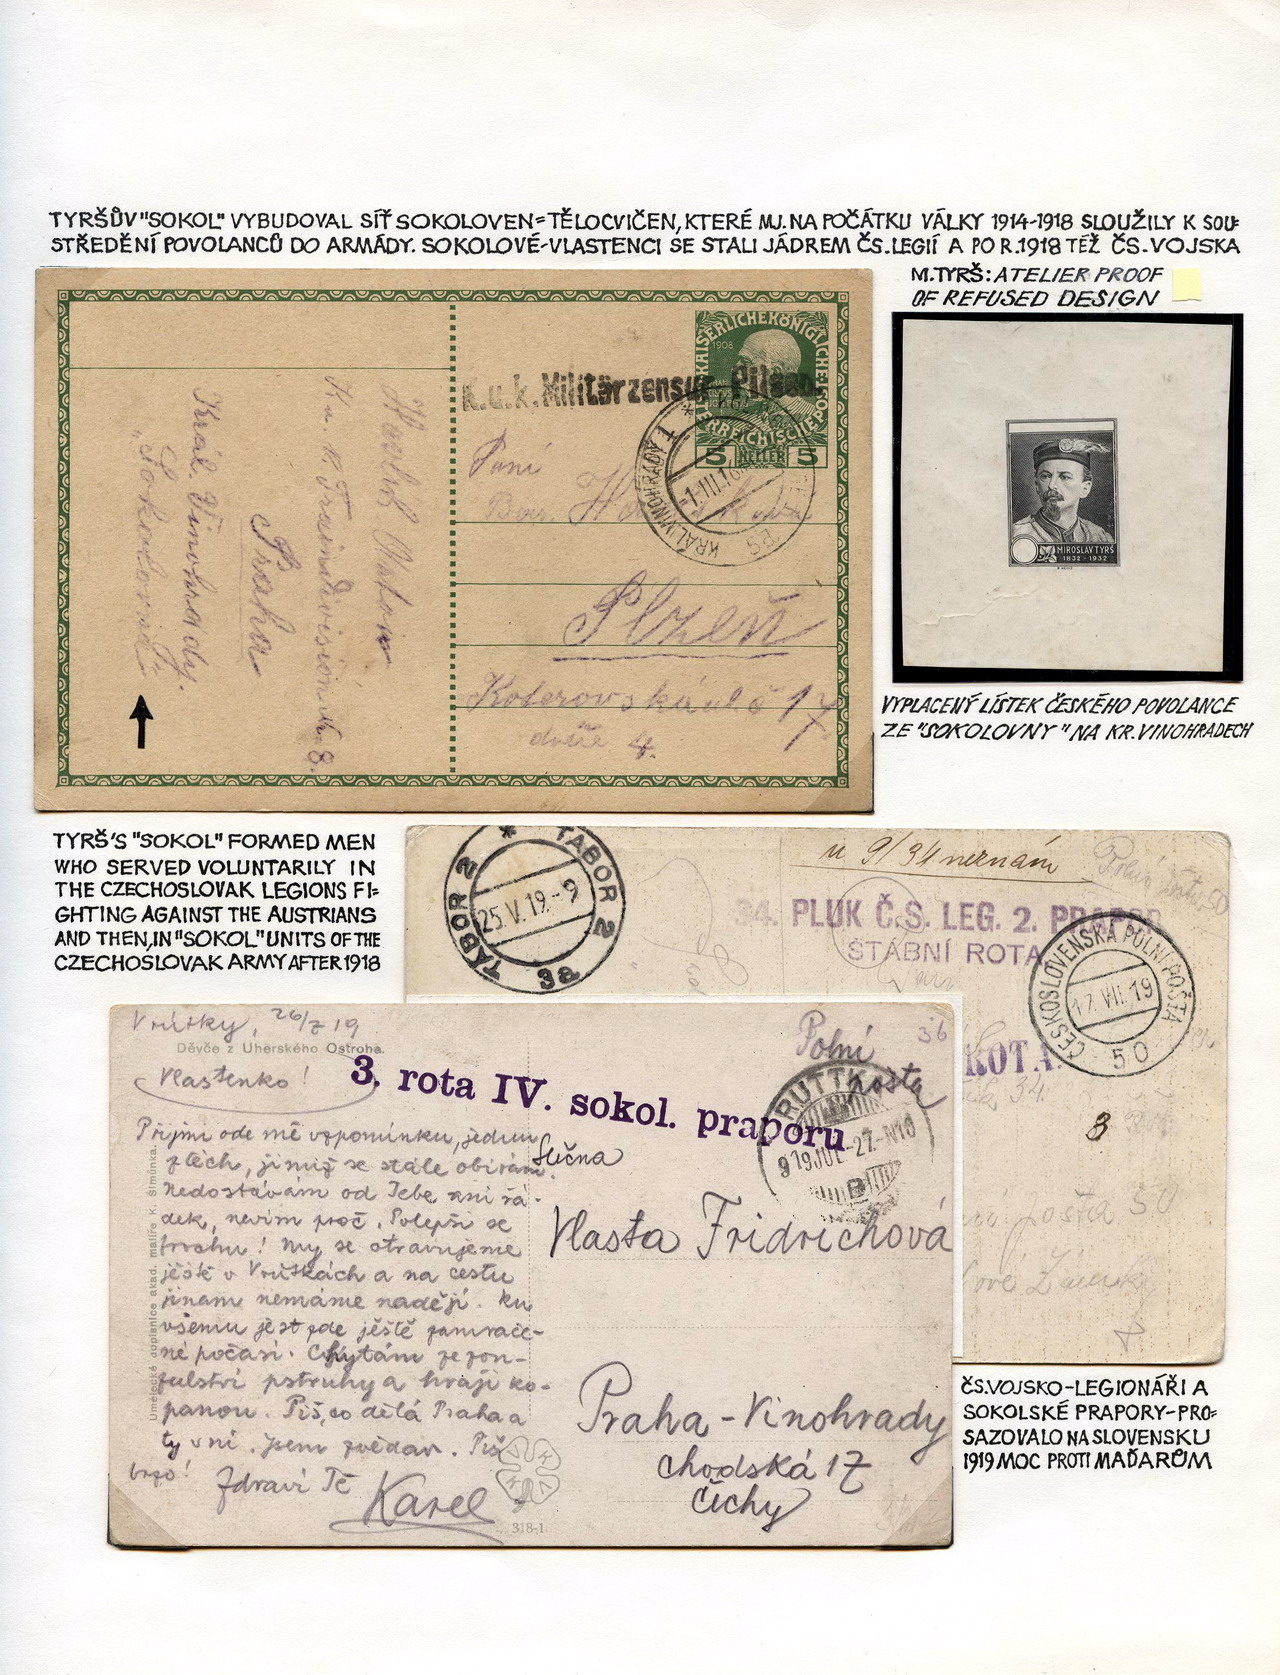 TYRŠŮV "SOKOL" VYBUDOVAL SÍŤ SOKOLOVEN=TĚLOCVIČEN, KTERÉ MJ. NA POČÁTKU VÁLKY 1914-1918 SLOUŽILY K SOU=
STŘEDĚNÍ POVOLANCŮ DO ARMÁDY. SOKOLOVÉ-VLASTENCI SE STALI JÁDREM ČS. LEGIÍ A PO R. 1918 TÉŽ ČS. VOJSKA
M. TYRŠ: ATELIER PROOF
OF REFUSED DESIGN
KAISERLICHEKÖNIGLICHE
1908
5 HELLER 5
k.u.k. Militärzensur Pilsen.
KRÁL. VINOHRADY 1
1.III.16
Paní
Plzeň
Koterovská ul č 17
dvéře 4.
Anton
K. u. K. Traindivision No 8.
Praha
Král. Vinohrady.
„Sokolovna"
MIROSLAV TYRŠ
1832 - 1932
VYPLACENÝ LÍSTEK ČESKÉHO POVOLANCE
ZE "SOKOLOVNY" NA KR. VINOHRADECH
TYRŠ'S "SOKOL" FORMED MEN
WHO SERVED VOLUNTARILY IN
THE CZECHOSLOVAK LEGIONS FI=
GHTING AGAINST THE AUSTRIANS
AND THEN, IN "SOKOL" UNITS OF THE
CZECHOSLOVAK ARMY AFTER 1918
TÁBOR 2 * TÁBOR 2
25.V.19.-9
3a
u 9/34 neznám
34. PLUK Č.S. LEG. 2. PRAPOR
ŠTÁBNÍ ROTA
ČESKOSLOVENSKÁ POLNÍ POŠTA
17.VII.19
50
ROTA.
34.
8
pošta 50
Vrútky, 26/7 19
Děvče z Uherského Ostroha.
Vlastenko!
3. rota IV. sokol. praporu
Polní
pošta
36
RUTTKA
919 JUL. 27. N10
B
Přijmi ode mě vzpomínku, jednu
z těch, jimiž se stále obírám.
Nedostávám od Tebe ani řá-
dek, nevím proč. Polepši se
trochu! My se otravujeme
ještě v Vrútkách a na cestu
jinam nemáme naději. Ku
všemu jest zde ještě zamrače-
né počasí. Chytám ze zou-
falství pstruhy a hraji ko-
panou. Piš, co dělá Praha a
ty v ní. Jsem zvědav. Piš
brzo! Zdraví Tě
Karel
Umělecké dopisnice akad. malíře K. Šimůnka.
318-1
Slečna
Vlasta Fridrichová
Praha - Vinohrady
Chodská 17
Čechy
ČS. VOJSKO-LEGIONÁŘI A
SOKOLSKÉ PRAPORY-PRO=
SAZOVALO NA SLOVENSKU
1919 MOC PROTI MAĎARŮM